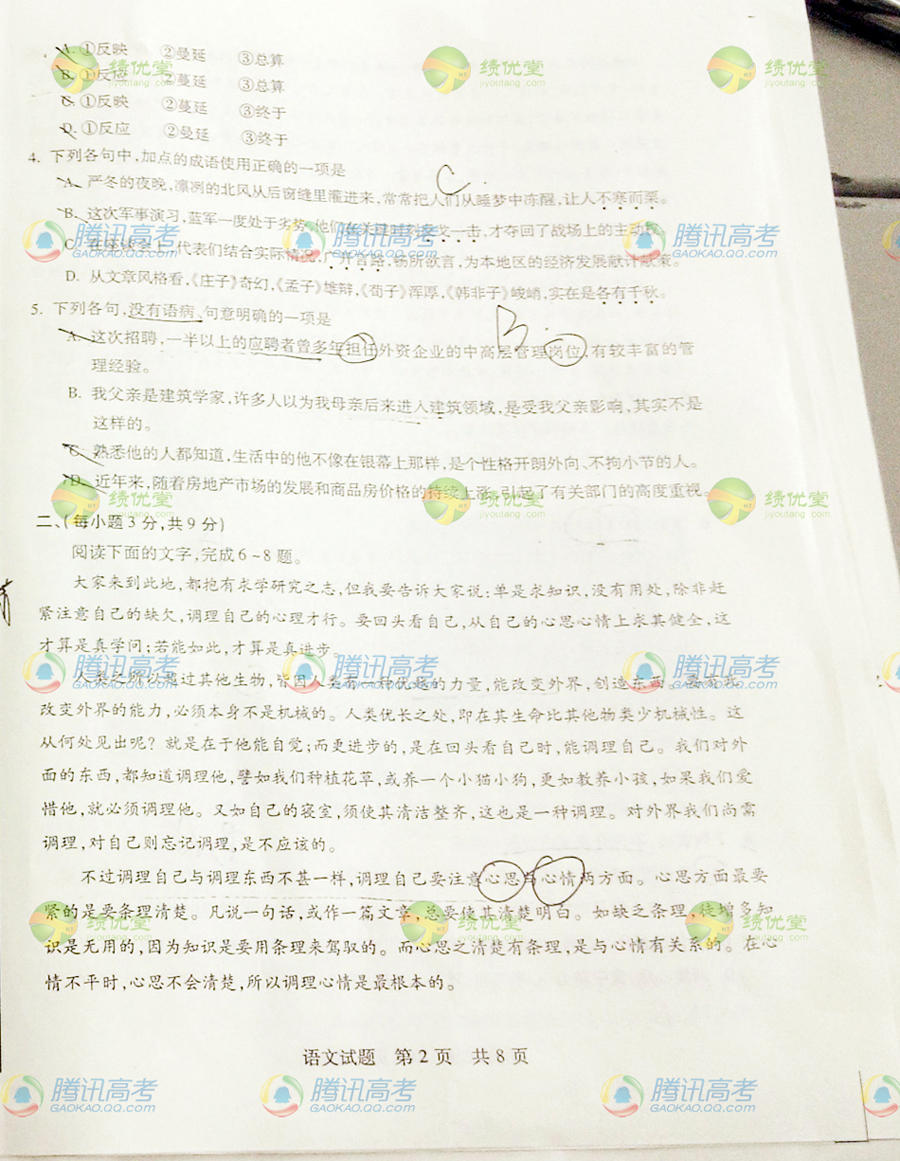 A. ①反映 ②曼延 ③总算
B. ①反应 ②蔓延 ③总算
C. ①反映 ②蔓延 ③终于
D. ①反应 ②曼延 ③终于
4. 下列各句中,加点的成语使用正确的一项是
C
A. 严冬的夜晚,凛冽的北风从后窗缝里灌进来,常常把人们从睡梦中冻醒,让人不寒而栗。
B. 这次军事演习,蓝军一度处于劣势,他们在关键时刻反戈一击,才夺回了战场上的主动权。
C. 在座谈会上,代表们结合实际情况,广开言路,畅所欲言,为本地区的经济发展献计献策。
D. 从文章风格看,《庄子》奇幻,《孟子》雄辩,《荀子》浑厚,《韩非子》峻峭,实在是各有千秋。
5. 下列各句,没有语病、句意明确的一项是
B
A. 这次招聘,一半以上的应聘者曾多年担任外资企业的中高层管理岗位,有较丰富的管
理经验。
B. 我父亲是建筑学家,许多人以为我母亲后来进入建筑领域,是受我父亲影响,其实不是
这样的。
C. 熟悉他的人都知道,生活中的他不像在银幕上那样,是个性格开朗外向、不拘小节的人。
D. 近年来,随着房地产市场的发展和商品房价格的持续上涨,引起了有关部门的高度重视。
二、(每小题3分,共9分)
阅读下面的文字,完成6~8题。
大家来到此地,都抱有求学研究之志,但我要告诉大家说:单是求知识,没有用处,除非赶
紧注意自己的缺欠,调理自己的心理才行。要回头看自己,从自己的心思心情上求其健全,这
才算是真学问;若能如此,才算是真进步。
人类之所以超过其他生物,皆因人类有一种优越的力量,能改变外界,创造东西。要有此
改变外界的能力,必须本身不是机械的。人类优长之处,即在其生命比其他物类少机械性。这
从何处见出呢?就是在于他能自觉;而更进步的,是在回头看自己时,能调理自己。我们对外
面的东西,都知道调理他,譬如我们种植花草,或养一个小猫小狗,更如教养小孩,如果我们爱
惜他,就必须调理他。又如自己的寝室,须使其清洁整齐,这也是一种调理。对外界我们尚需
调理,对自己则忘记调理,是不应该的。
不过调理自己与调理东西不甚一样,调理自己要注意心思与心情两方面。心思方面最要
紧的是要条理清楚。凡说一句话,或作一篇文章,总要使其清楚明白。如缺乏条理,徒增多知
识是无用的,因为知识是要用条理来驾驭的。而心思之清楚有条理,是与心情有关系的。在心
情不平时,心思不会清楚,所以调理心情是最根本的。
语文试题 第2页 共8页
绩优堂 jiyoutang.com
腾讯高考 GAOKAO.QQ.COM